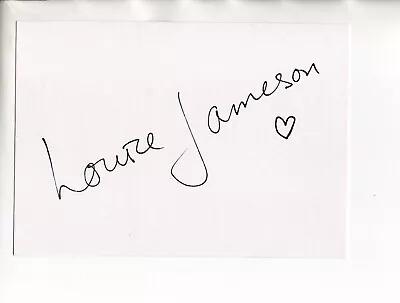 Louise Jameson ♡